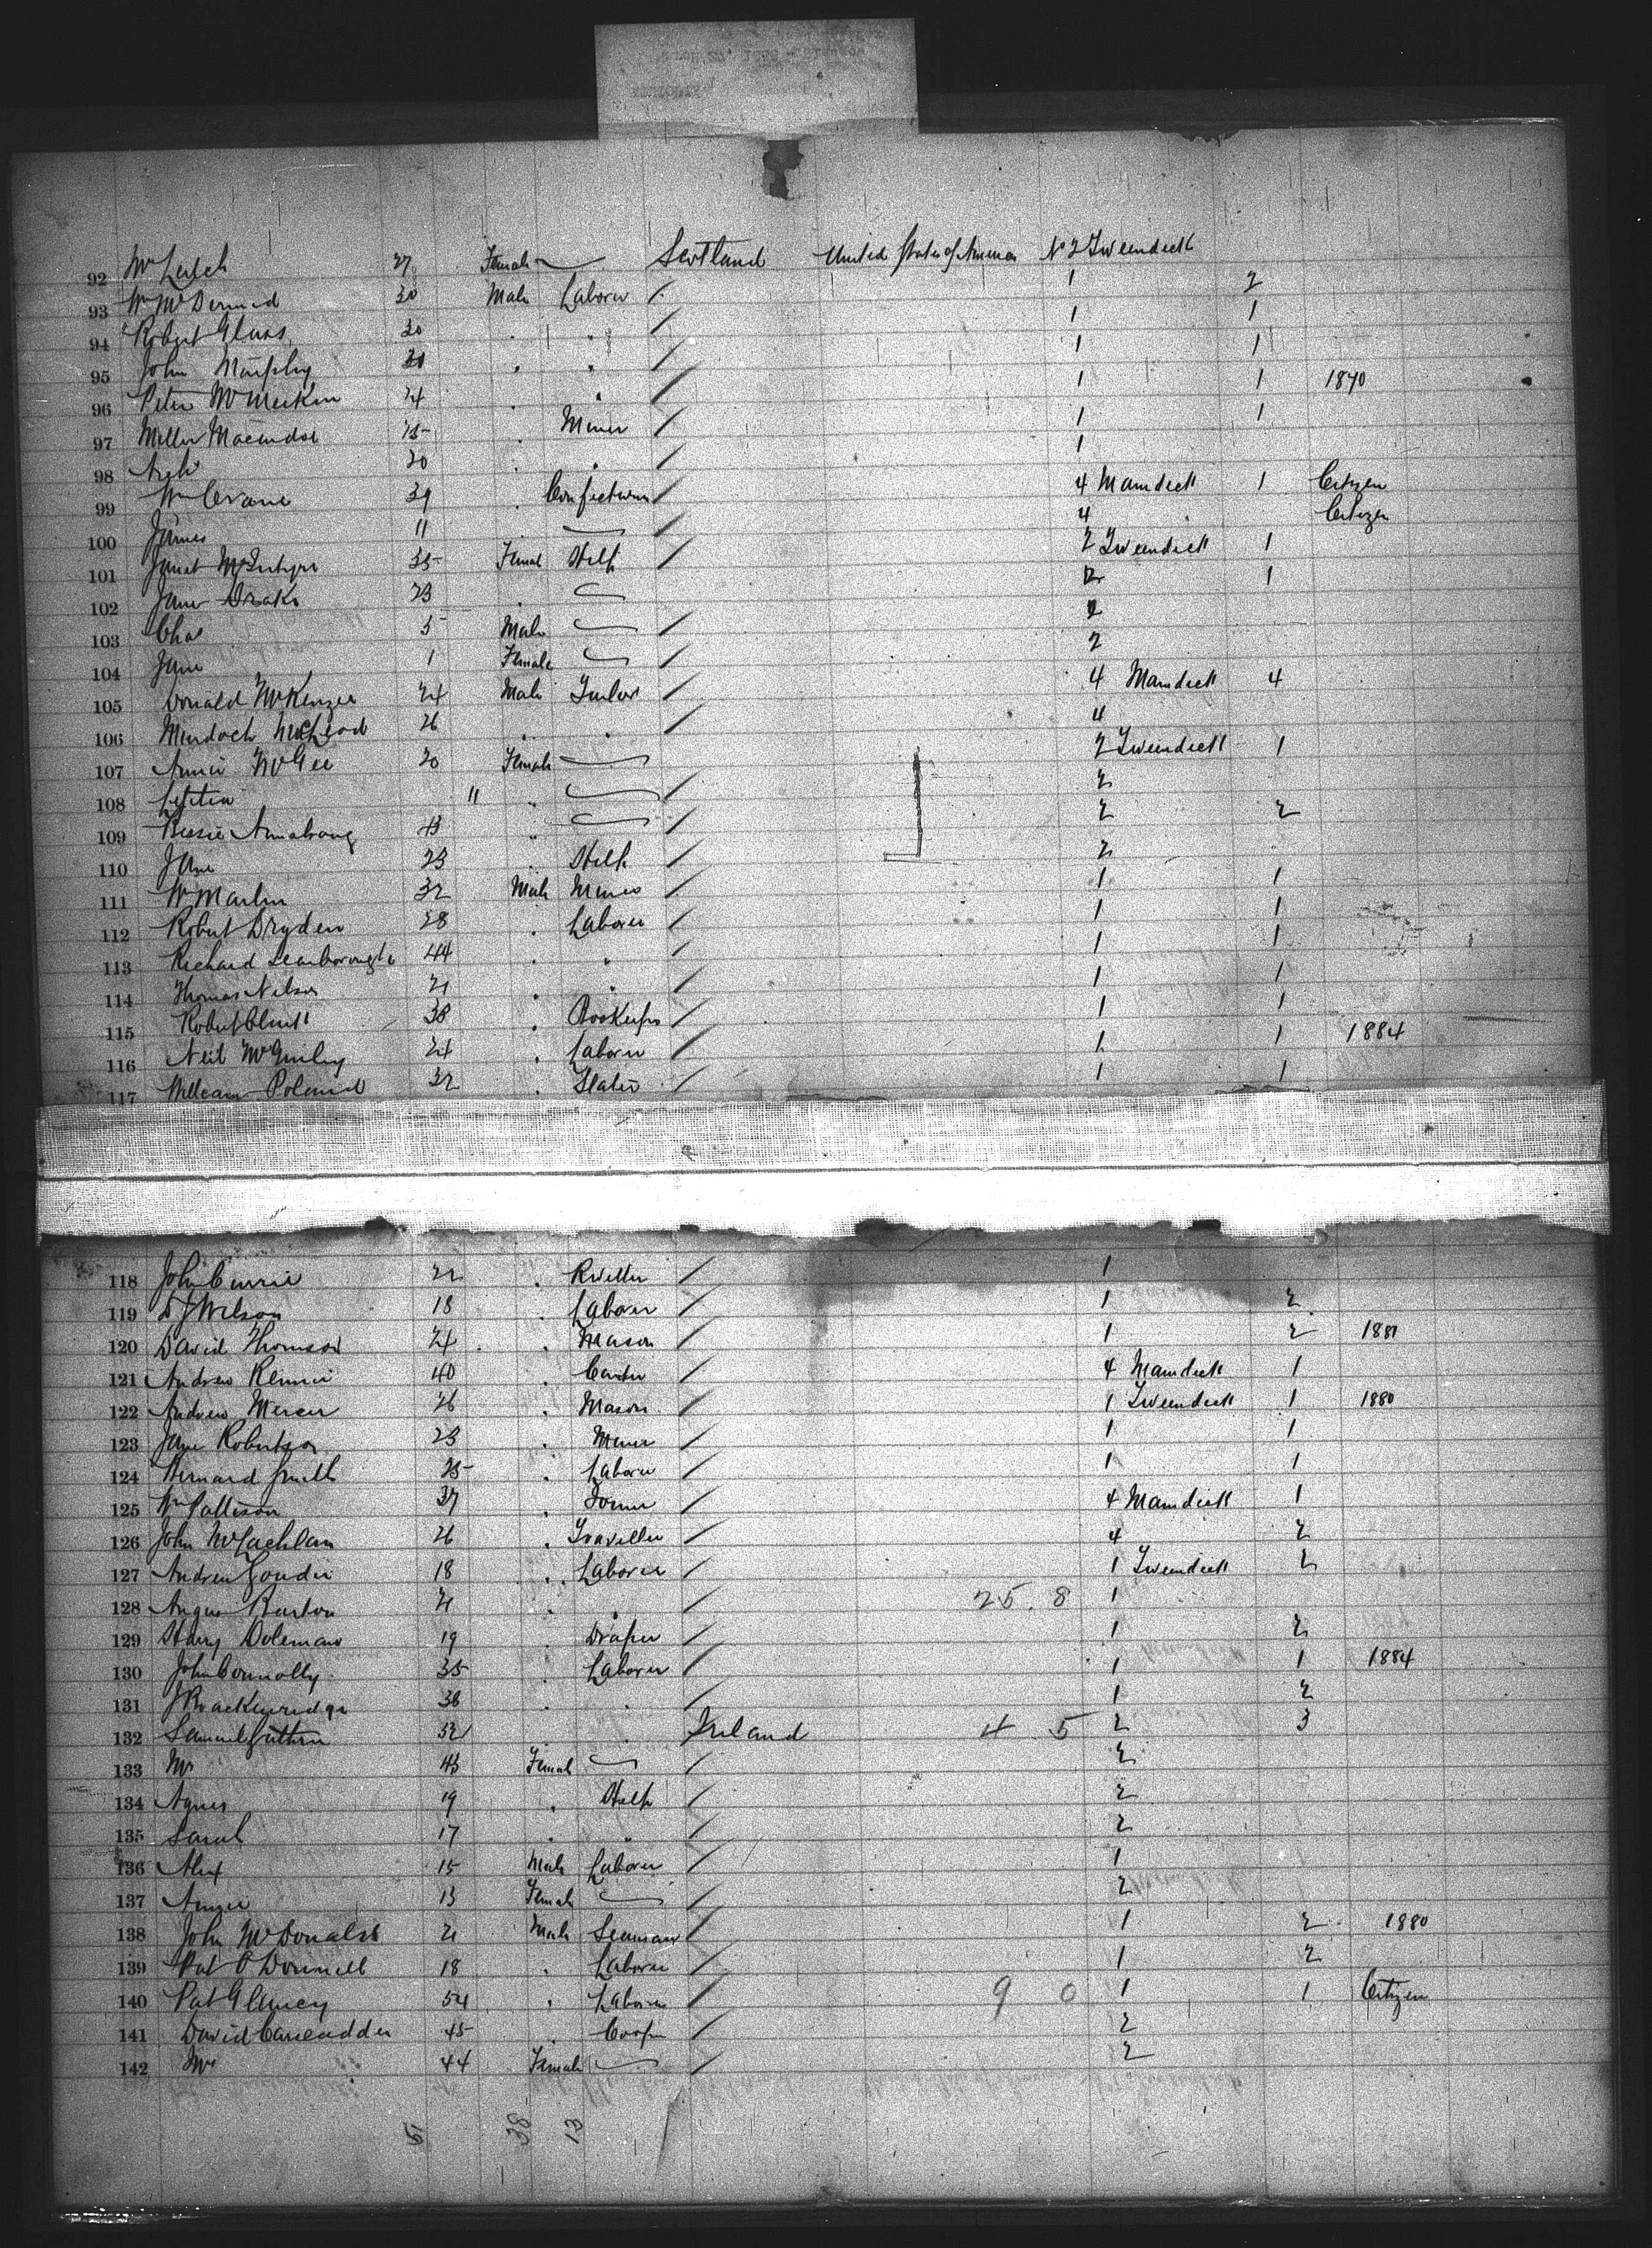 92 Mrs Leitch 27 Female Scotland United States of America No 2 Tweendeck
93 Wm McDermid 30 Male Laborer 1 2
94 Robert Glass 30 " " 1 1
95 John Murphy 30 " " 1 1
96 Peter McMeekin 24 " " 1 1 1870
97 Miller 15 " Miner 1 1
98 Arch 20 " " 1
99 Wm Crane 39 " Confectioner 4 Maindeck 1 Citizen
100 James 11 " 4 Citizen
101 Janet McIntyre 35 Female Help 2 Tweendeck 1
102 Jane Drake 23 " 2 1
103 Chas 5 Male 2
104 Jane 1 Female 2
105 Donald McKenzie 24 Male Tailor 4 Maindeck 4
106 Murdoch McLeod 26 " " 4
107 Annie McGee 20 Female 2 Tweendeck 1
108 Letitia 11 " 2
109 Bessie Armstrong 43 " 2 2
110 Jane 23 " Help 2
111 Wm Martin 32 Male Miner 1 1
112 Robert Dryden 28 " Laborer 1 1
113 Richard 44 " " 1 1
114 Thomas Nelson 21 " " 1 1
115 Robert 38 " Bookeeper 1 1
116 Neil 24 " Laborer 1 1 1884
117 William Poland 32 " Slater 1 1
118 John Currie 22 " Rivetter 1
119 D J Wilson 18 " Laborer 1 2
120 David Thomson 24 " Mason 1 2 1881
121 Andrew Rennie 40 " Carter 4 Maindeck 1
122 Andrew Mercer 26 " Mason 1 Tweendeck 1 1880
123 Jane Robertson 23 " Miner 1 1
124 Bernard Smith 25 " Laborer 1 1
125 Wm Pattison 37 " Joiner 4 Maindeck 1
126 John McLachlan 26 " Traveller 4 2
127 Andrew Goudie 18 " Laborer 1 Tweendeck 2
128 Angus Burton 21 " " 25 . 8 1
129 Harry Doleman 19 " Draper 1 2
130 John Connolly 35 " Laborer 1 1 1884
131 J Brackenridge 38 " " 1 2
132 Samuel Guthrie 52 " " Ireland 4 5 2 3
133 Mrs 43 Female 2
134 Agnes 19 " Help 2
135 Sarah 17 " " 2
136 Alex 15 Male Laborer 1
137 Annie 13 Female 2
138 John McDonald 21 Male Seaman 1 2 1880
139 Pat O'Donnell 18 " Laborer 1 2
140 Pat Glancy 54 " Laborer 9 0 1 1 Citizen
141 David Carscadden 45 " Cooper 2
142 Mrs 44 Female 2
5 38 13